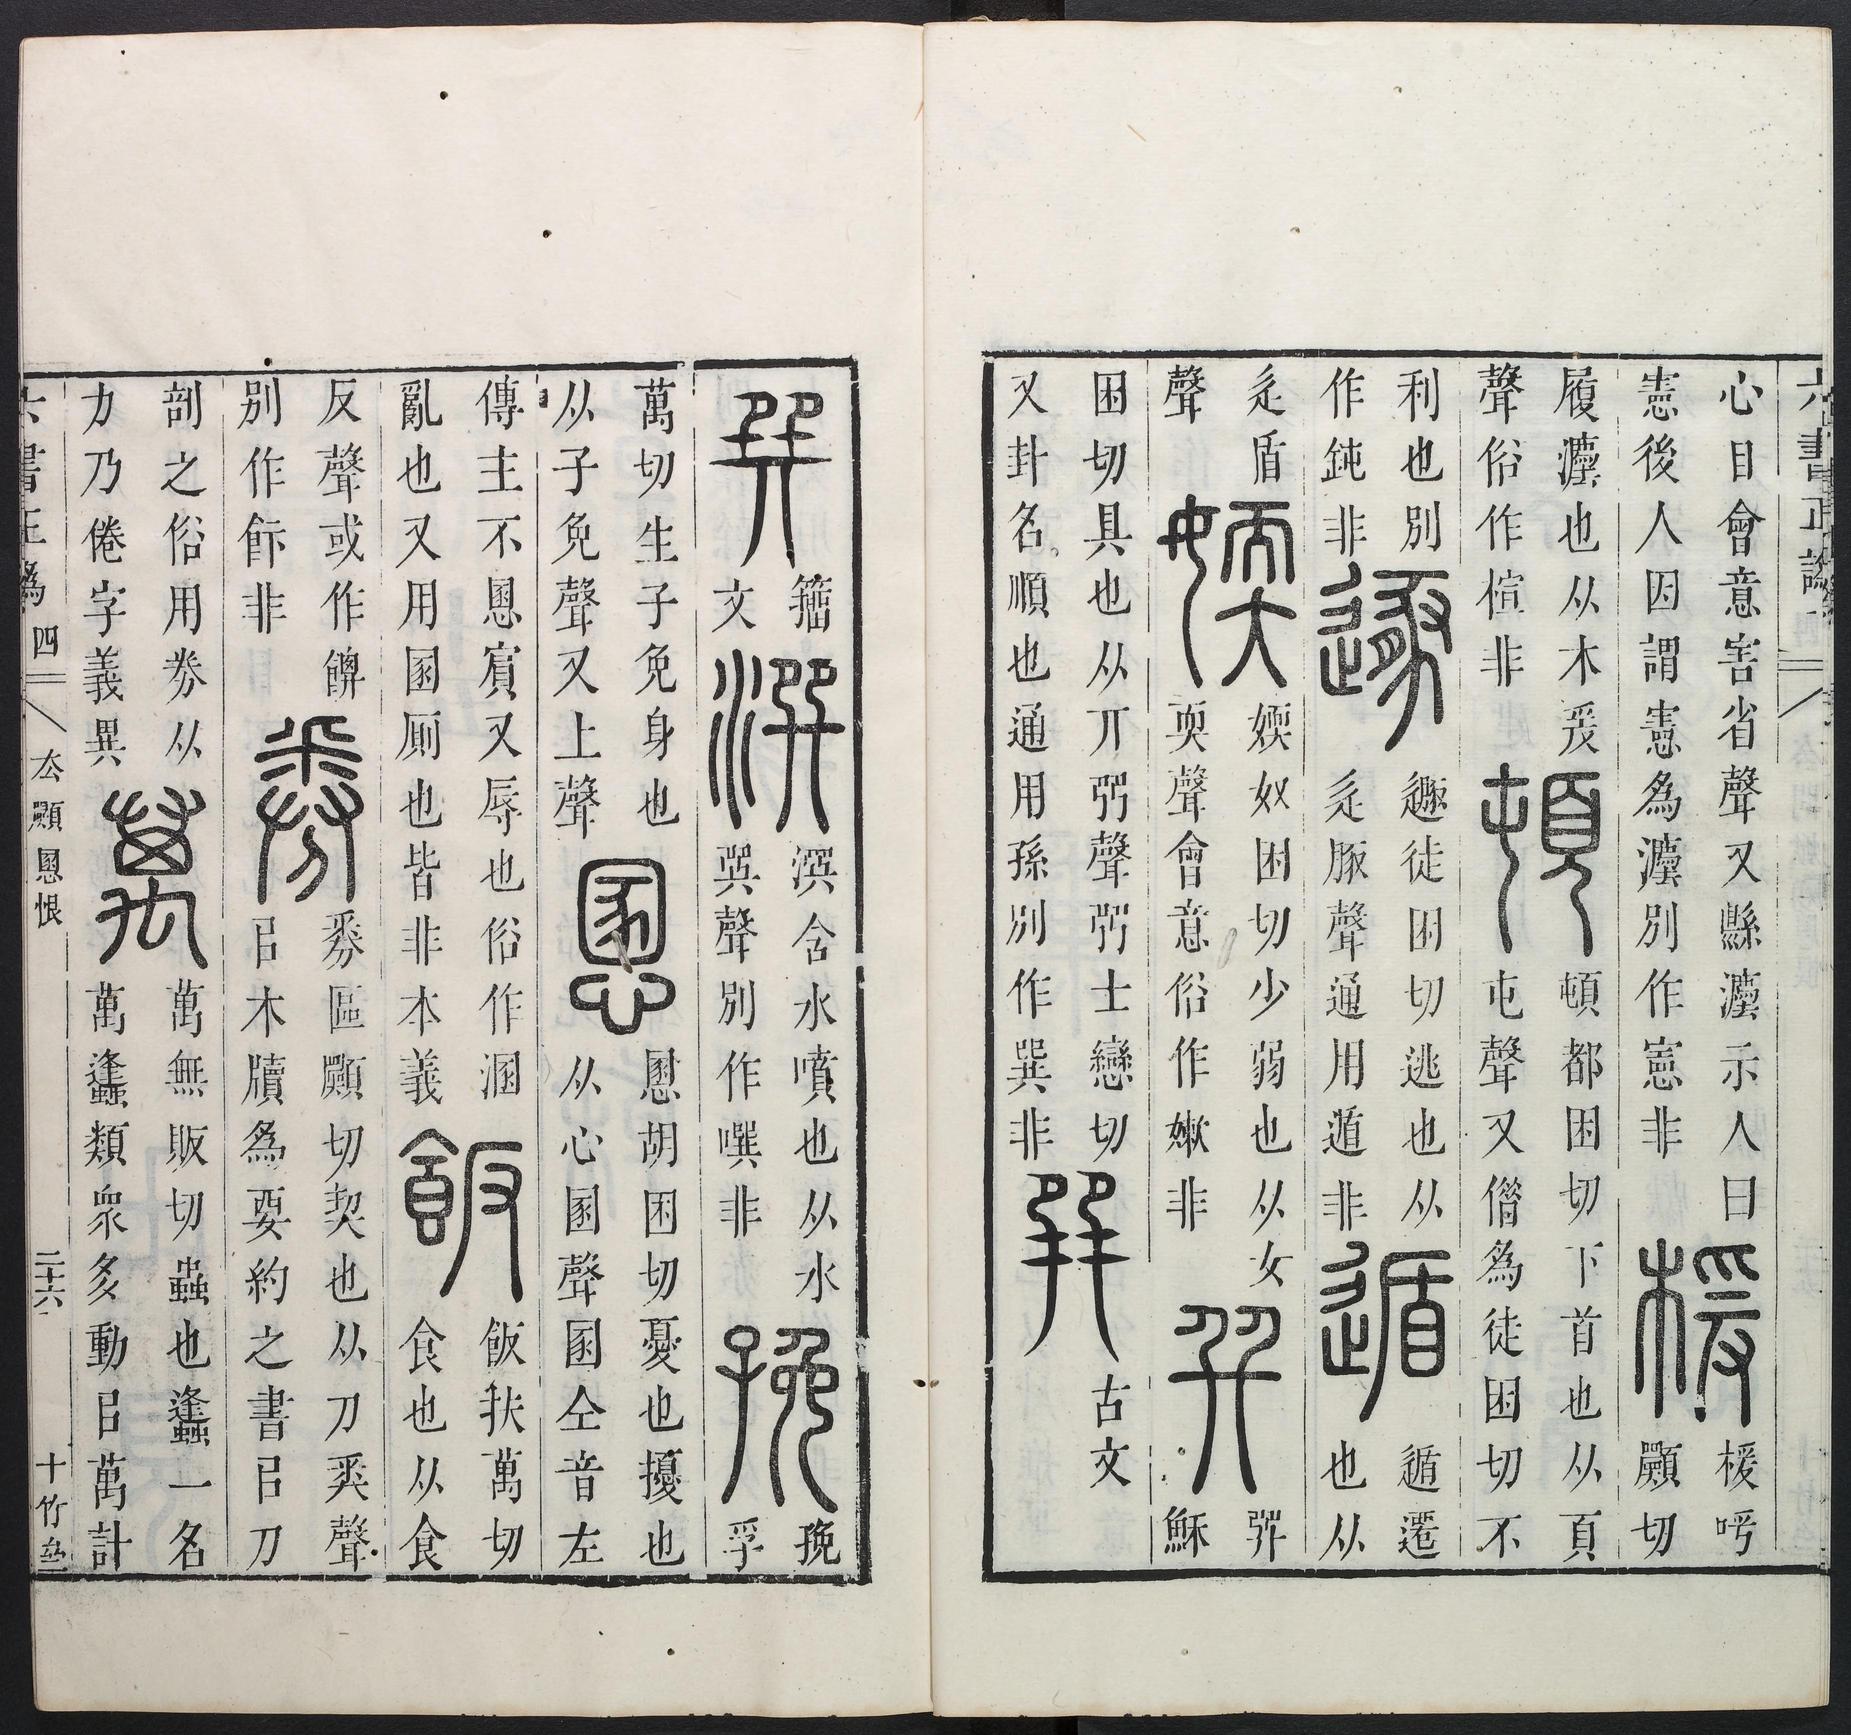 六書正譌
心目會意害省聲又縣灋示人曰
憲後人因謂憲為灋別作憲非
楥
楥呼
願切
履灋也从木爰
聲俗作楦非
頓
頓都困切下首也从頁
屯聲又借為徒困切不
利也別
作鈍非
遯
遯徒困切逃也从
辵豚聲通用遁非
遁
遁遷
也从
辵盾
聲
媆
媆奴困切少弱也从女
耎聲會意俗作嫩非
巽
穌
困切具也从丌弜聲弜士戀切
又卦名順也通用孫別作巽非
古文
籀
文
潠
潠含水噴也从水
巽聲別作噀非
挽
孚
萬切生子免身也
从子免聲又上聲
慁
慁胡困切憂也擾也
从心圂聲圂仝音左
傳主不慁賓又辱也俗作溷
亂也又用圂厠也皆非本義
飯
飯扶萬切
食也从食
反聲或作餴
別作飰非
券
券區願切契也从刀𢍏聲
㠯木牘為要約之書㠯刀
剖之俗用劵从
力乃倦字義異
萬
萬無販切蟲也蠭一名
萬蠭類衆多動㠯萬計
六書正譌 四 去 願慁恨 二十六 十竹齋